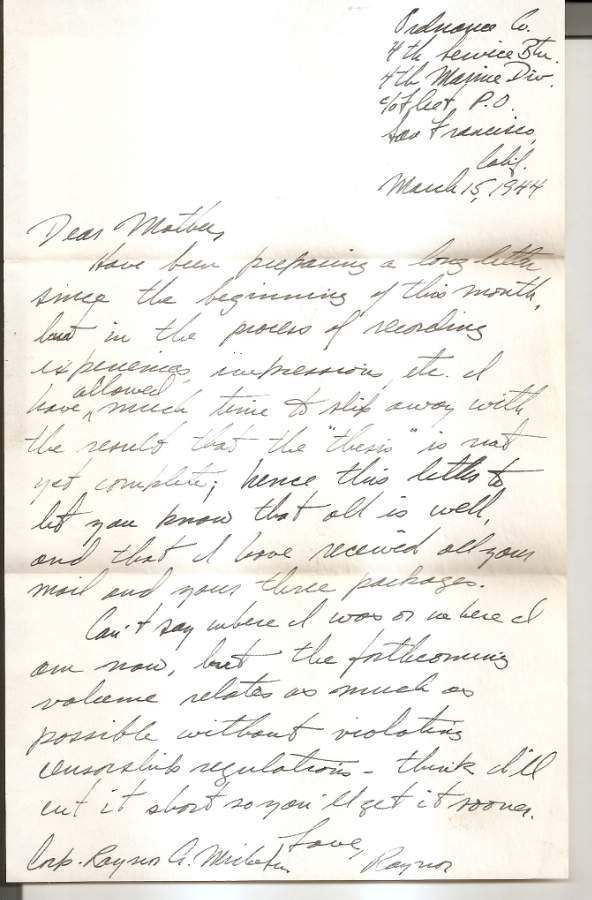 Ordnance Co.
4th Service Btn.
4th Marine Div.
c/o Fleet P.O.
San Francisco,
Calif.
March 15, 1944
Dear Mother,
Have been preparing a long letter
since the beginning of this month,
but in the process of recording
experiences, impressions, etc. I
have allowed much time to slip away with
the result that the "thesis" is not
yet complete; hence this letter to
let you know that all is well,
and that I have received all your
mail and your three packages.
Can't say where I was or where I
am now, but the forthcoming
volume relates as much as
possible without violating
censorship regulations - think I'll
cut it short so you'll get it sooner.
Love,
Corp. Raynor A. Raynor